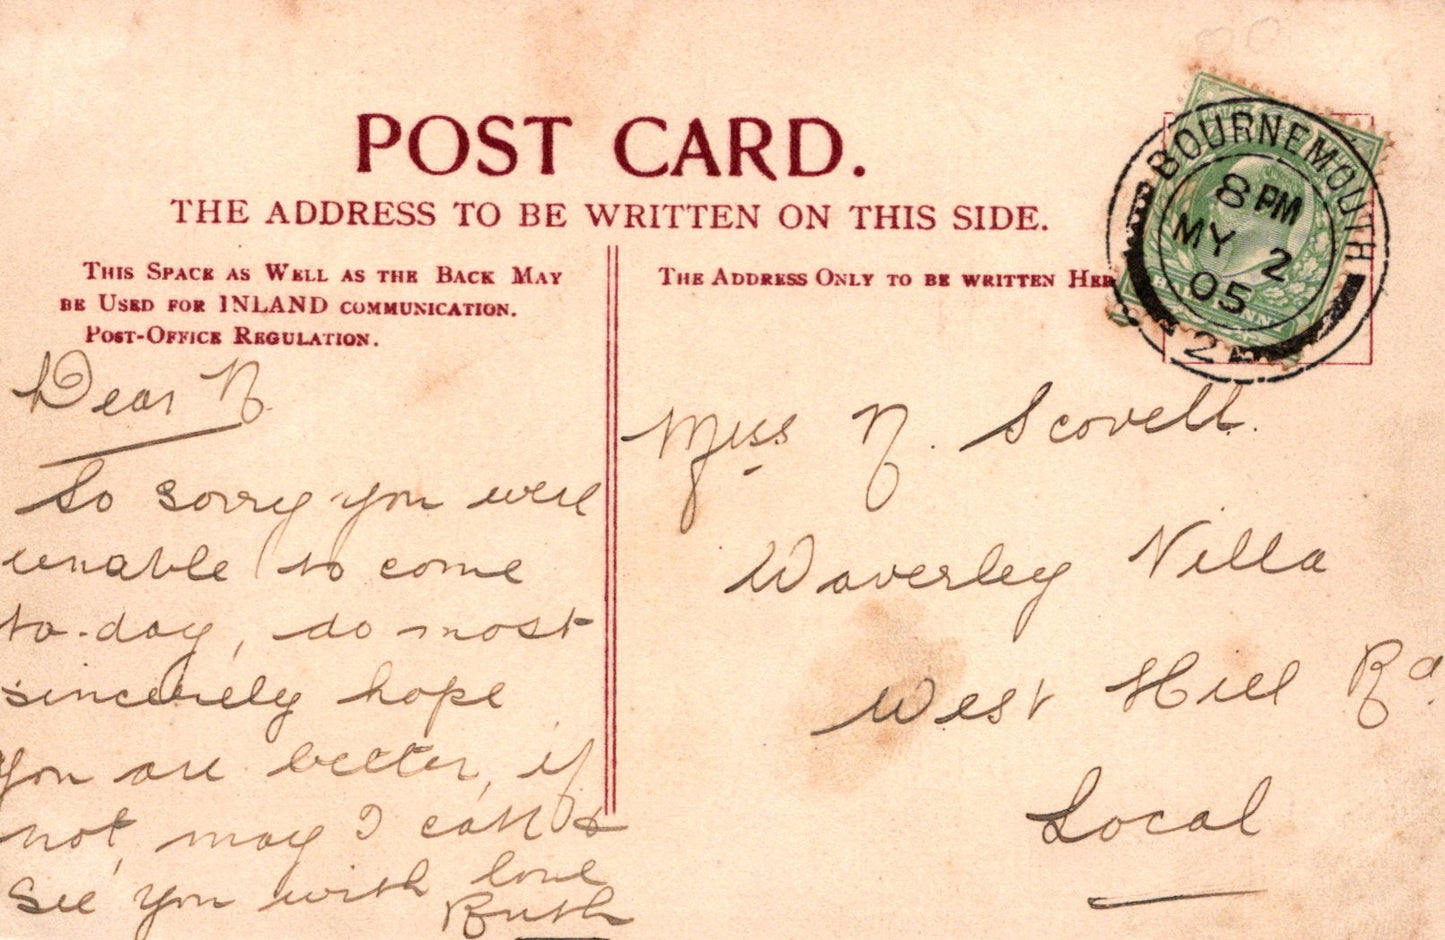 POST CARD.
THE ADDRESS TO BE WRITTEN ON THIS SIDE.
THIS SPACE AS WELL AS THE BACK MAY
BE USED FOR INLAND COMMUNICATION.
POST-OFFICE REGULATION.
THE ADDRESS ONLY TO BE WRITTEN HER
BOURNEMOUTH
8 PM
MY 2
05
2
Dear N.
So sorry you were
unable to come
to-day, do most
sincerely hope
you are better, if
not, may I call &
see you with love
Ruth
Miss N. Scovell.
Waverley Villa
West Hill Rd.
Local